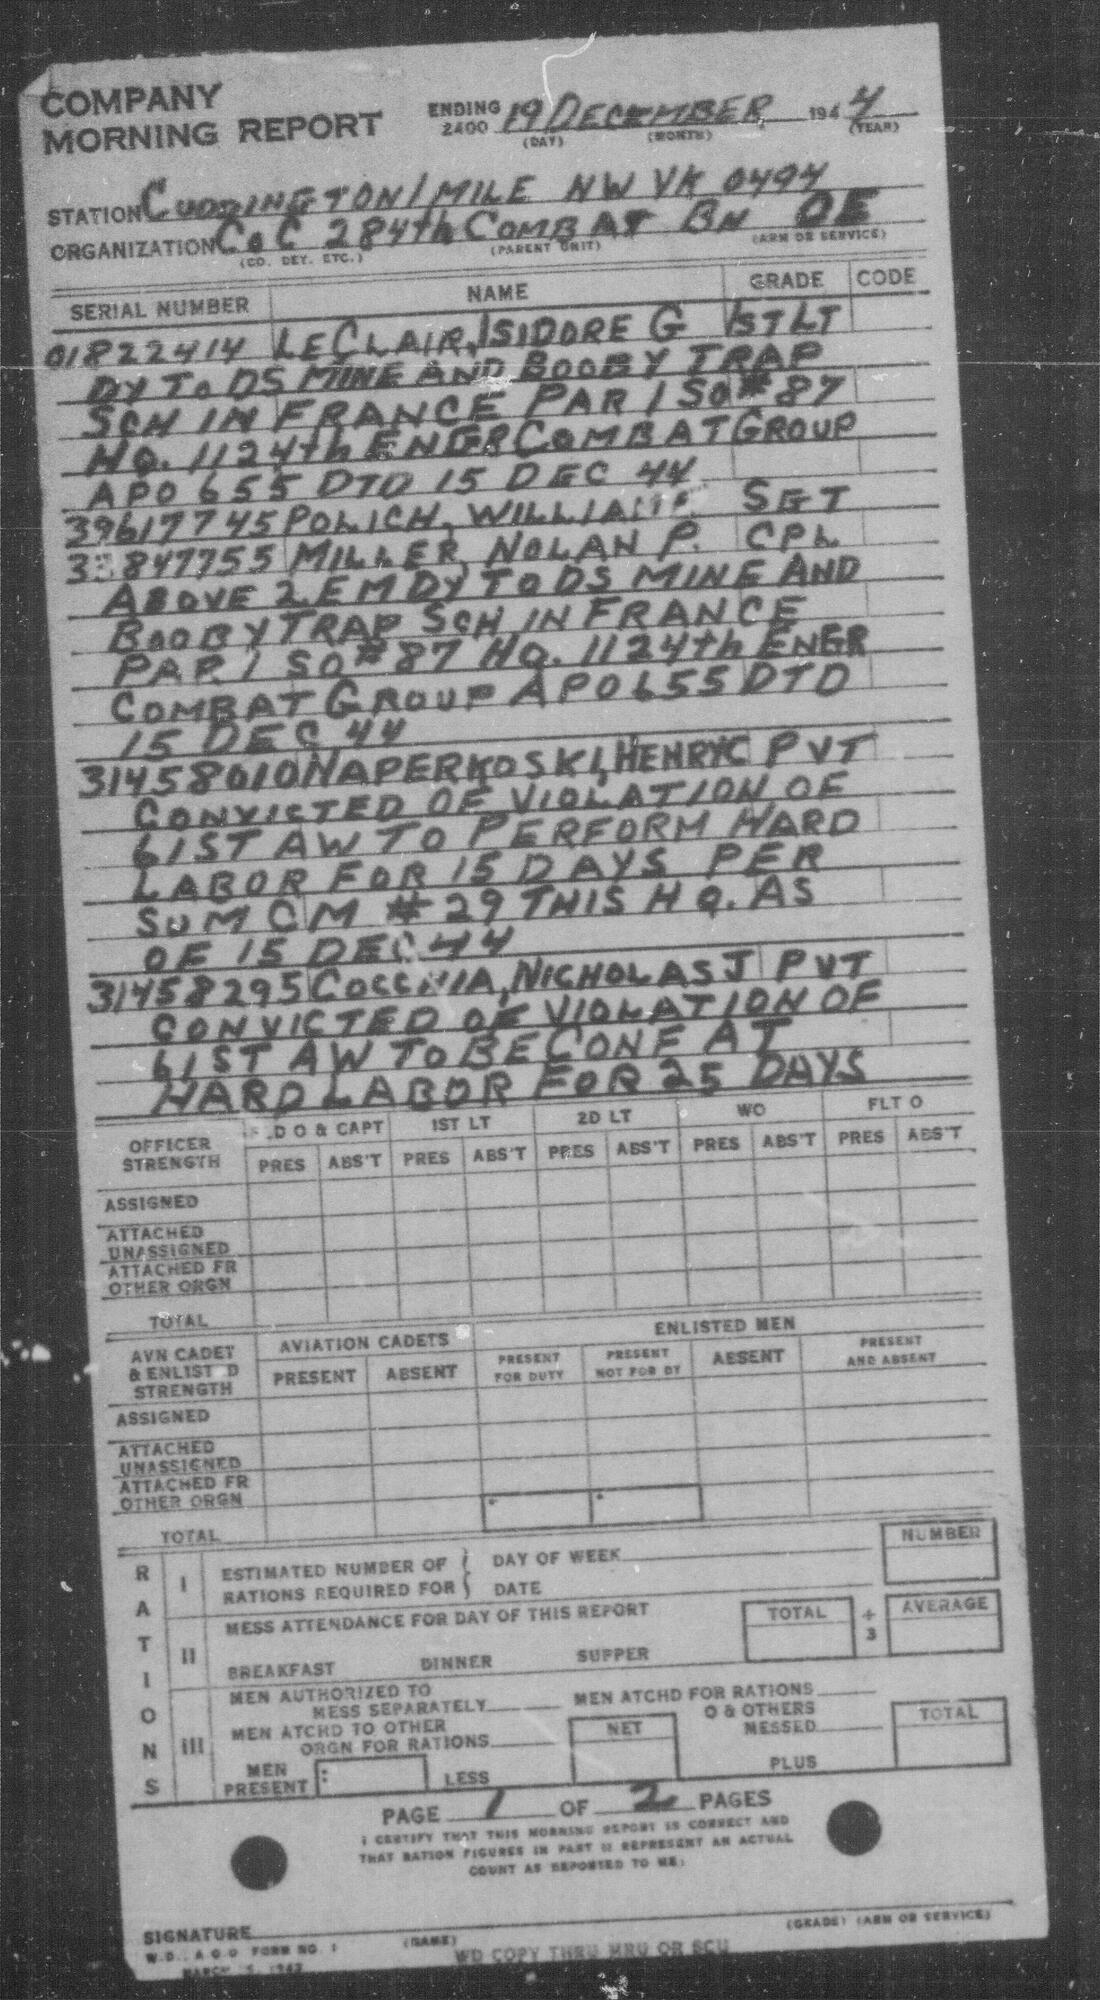 COMPANY
MORNING REPORT
ENDING 2400 19 DECEMBER 1944
(DAY) (MONTH) (YEAR)
STATION CUDDINGTON 1 MILE NW VK 0494
ORGANIZATION Co C 284th COMBAT BN OE
(CO. DET. ETC.) (PARENT UNIT) (ARM OR SERVICE)
SERIAL NUMBER NAME GRADE CODE
01822414 LECLAIR, ISIDORE G 1ST LT
DY TO DS MINE AND BOOBY TRAP
SCH IN FRANCE PAR 1 SO #87
HQ. 1124th ENGR COMBAT GROUP
APO 655 DTD 15 DEC 44
39617745 POLICH, SGT
MILLER, NOLAN P. CPL
ABOVE 2 EM DY TO DS MINE AND
BOOBY TRAP SCH IN FRANCE
PAR. 1 SO #87 HQ. 1124th ENGR
COMBAT GROUP APO 655 DTD
15 DEC 44
31458010 NAPERKOSKI, HENRY C PVT
CONVICTED OF VIOLATION OF
61ST AW TO PERFORM HARD
LABOR FOR 15 DAYS PER
SUM CM #29 THIS HQ. AS
OF 15 DEC 44
31458295 NICHOLAS J PVT
CONVICTED OF VIOLATION OF
61ST AW TO BE CONF AT
HARD LABOR FOR 25 DAYS
OFFICER STRENGTH D O & CAPT 1ST LT 2D LT WO FLT O
PRES ABS'T PRES ABS'T PRES ABS'T PRES ABS'T PRES ABS'T
ASSIGNED
ATTACHED UNASSIGNED
ATTACHED FR OTHER ORGN
TOTAL
AVN CADET & ENLIST D STRENGTH AVIATION CADETS ENLISTED MEN
PRESENT ABSENT PRESENT FOR DUTY PRESENT NOT FOR DY ABSENT PRESENT AND ABSENT
ASSIGNED
ATTACHED UNASSIGNED
ATTACHED FR OTHER ORGN
TOTAL
RATIONS
I ESTIMATED NUMBER OF RATIONS REQUIRED FOR DAY OF WEEK DATE NUMBER
II MESS ATTENDANCE FOR DAY OF THIS REPORT TOTAL ÷ 3 AVERAGE
BREAKFAST DINNER SUPPER
III MEN AUTHORIZED TO MESS SEPARATELY MEN ATCHD FOR RATIONS
MEN ATCHD TO OTHER ORGN FOR RATIONS NET O & OTHERS MESSED TOTAL
MEN PRESENT LESS PLUS
PAGE 1 OF 2 PAGES
I CERTIFY THAT THIS MORNING REPORT IS CORRECT AND
THAT RATION FIGURES IN PART II REPRESENT AN ACTUAL
COUNT AS REPORTED TO ME:
SIGNATURE
(NAME) (GRADE) (ARM OR SERVICE)
W.D., A.G.O. FORM NO. 1
WD COPY THRU MRU OR SCU